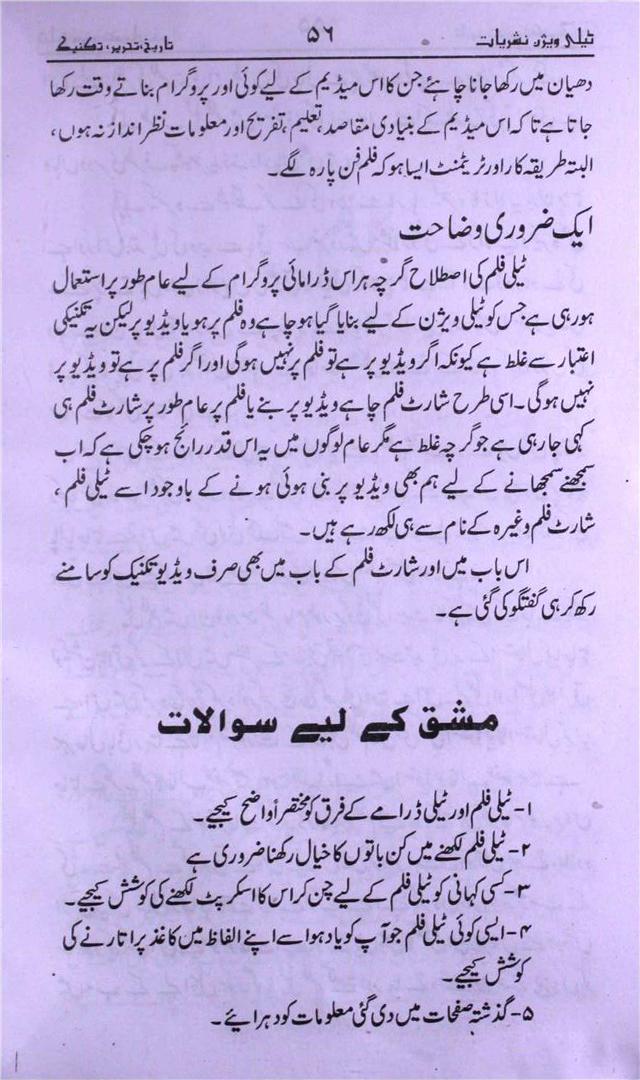 ٹیلی ویژن نشریات ۵۶ تاریخ، تحریر، تکنیک
دھیان میں رکھا جانا چاہئے جن کا اس میڈیم کے لیے کوئی اور پروگرام بناتے وقت رکھا
جاتا ہے تاکہ اس میڈیم کے بنیادی مقاصد، تعلیم، تفریح اور معلومات نظر انداز نہ ہوں،
البتہ طریقہ کار اور ٹریٹمنٹ ایسا ہو کہ فلم فن پارہ لگے۔
ایک ضروری وضاحت
ٹیلی فلم کی اصطلاح گرچہ ہر اس ڈرامائی پروگرام کے لیے عام طور پر استعمال
ہو رہی ہے جس کو ٹیلی ویژن کے لیے بنایا گیا ہو چاہے وہ فلم پر ہو یا ویڈیو پر لیکن یہ تکنیکی
اعتبار سے غلط ہے کیونکہ اگر ویڈیو پر ہے تو فلم پر نہیں ہوگی اور اگر فلم پر ہے تو ویڈیو پر
نہیں ہوگی۔ اسی طرح شارٹ فلم چاہے ویڈیو پر بنے یا فلم پر عام طور پر شارٹ فلم ہی
کہی جا رہی ہے جو گرچہ غلط ہے مگر عام لوگوں میں یہ اس قدر رائج ہو چکی ہے کہ اب
سمجھنے سمجھانے کے لیے ہم بھی ویڈیو پر بنی ہوئی ہونے کے باوجود اسے ٹیلی فلم،
شارٹ فلم وغیرہ کے نام سے ہی لکھ رہے ہیں۔
اس باب میں اور شارٹ فلم کے باب میں بھی صرف ویڈیو تکنیک کو سامنے
رکھ کر ہی گفتگو کی گئی ہے۔
مشق کے لیے سوالات
۱- ٹیلی فلم اور ٹیلی ڈرامے کے فرق کو مختصراً واضح کیجیے۔
۲- ٹیلی فلم لکھنے میں کن باتوں کا خیال رکھنا ضروری ہے
۳- کسی کہانی کو ٹیلی فلم کے لیے چن کر اس کا اسکرپٹ لکھنے کی کوشش کیجیے۔
۴- ایسی کوئی ٹیلی فلم جو آپ کو یاد ہو اسے اپنے الفاظ میں کاغذ پر اتارنے کی
کوشش کیجیے۔
۵- گذشتہ صفحات میں دی گئی معلومات کو دہرائیے۔